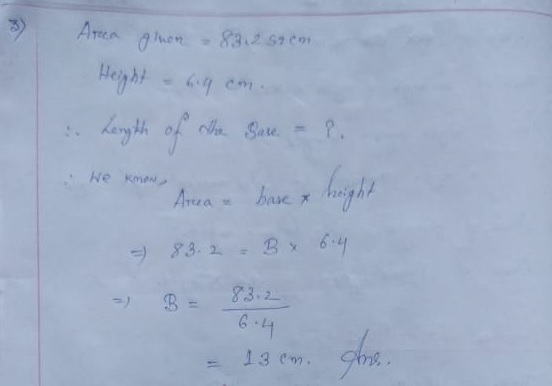 3) Area given = 83.2 sq cm
Height = 6.4 cm.
∴ Length of the Base = ?.
∴ We know,
Area = base × height
⇒ 83.2 = B × 6.4
⇒ B = 83.2 / 6.4
= 13 cm. Ans.